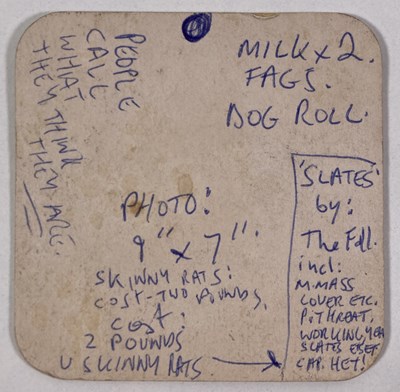 PEOPLE
CALL
WHAT
THEY THINK
THEY ARE.
MILK x 2.
FAGS.
DOG ROLL.
PHOTO:
9" x 7".
SKINNY RATS:
COST-TWO POUNDS.
COST:
2 POUNDS
U SKINNY RATS
'SLATES'
by:
The Fall.
incl:
M.MASS
LOVER ETC.
P.THREAT,
WORKING,
SLATES
CAP. HEY!